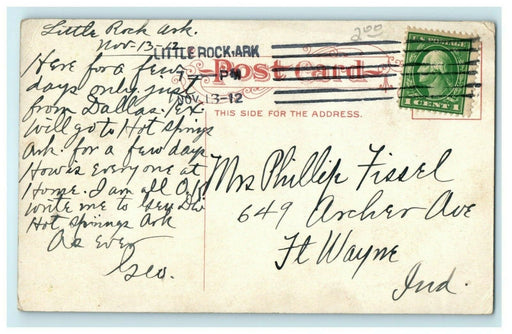 Little Rock Ark.
Nov-13-12
Here for a few
days only just
from Dallas. Tex.
Will go to Hot Springs
Ark. for a few days
How is every one at
Home. I am all O.K.
write me to Gen Del
Hot Springs Ark
As Ever
Geo.
200
LITTLE ROCK, ARK
PM
NOV. 13-12
Post Card
THIS SIDE FOR THE ADDRESS.
U.S. POSTAGE
1 CENT 1
Mrs Phillip Fissel
649 Archer Ave
Ft Wayne
Ind.